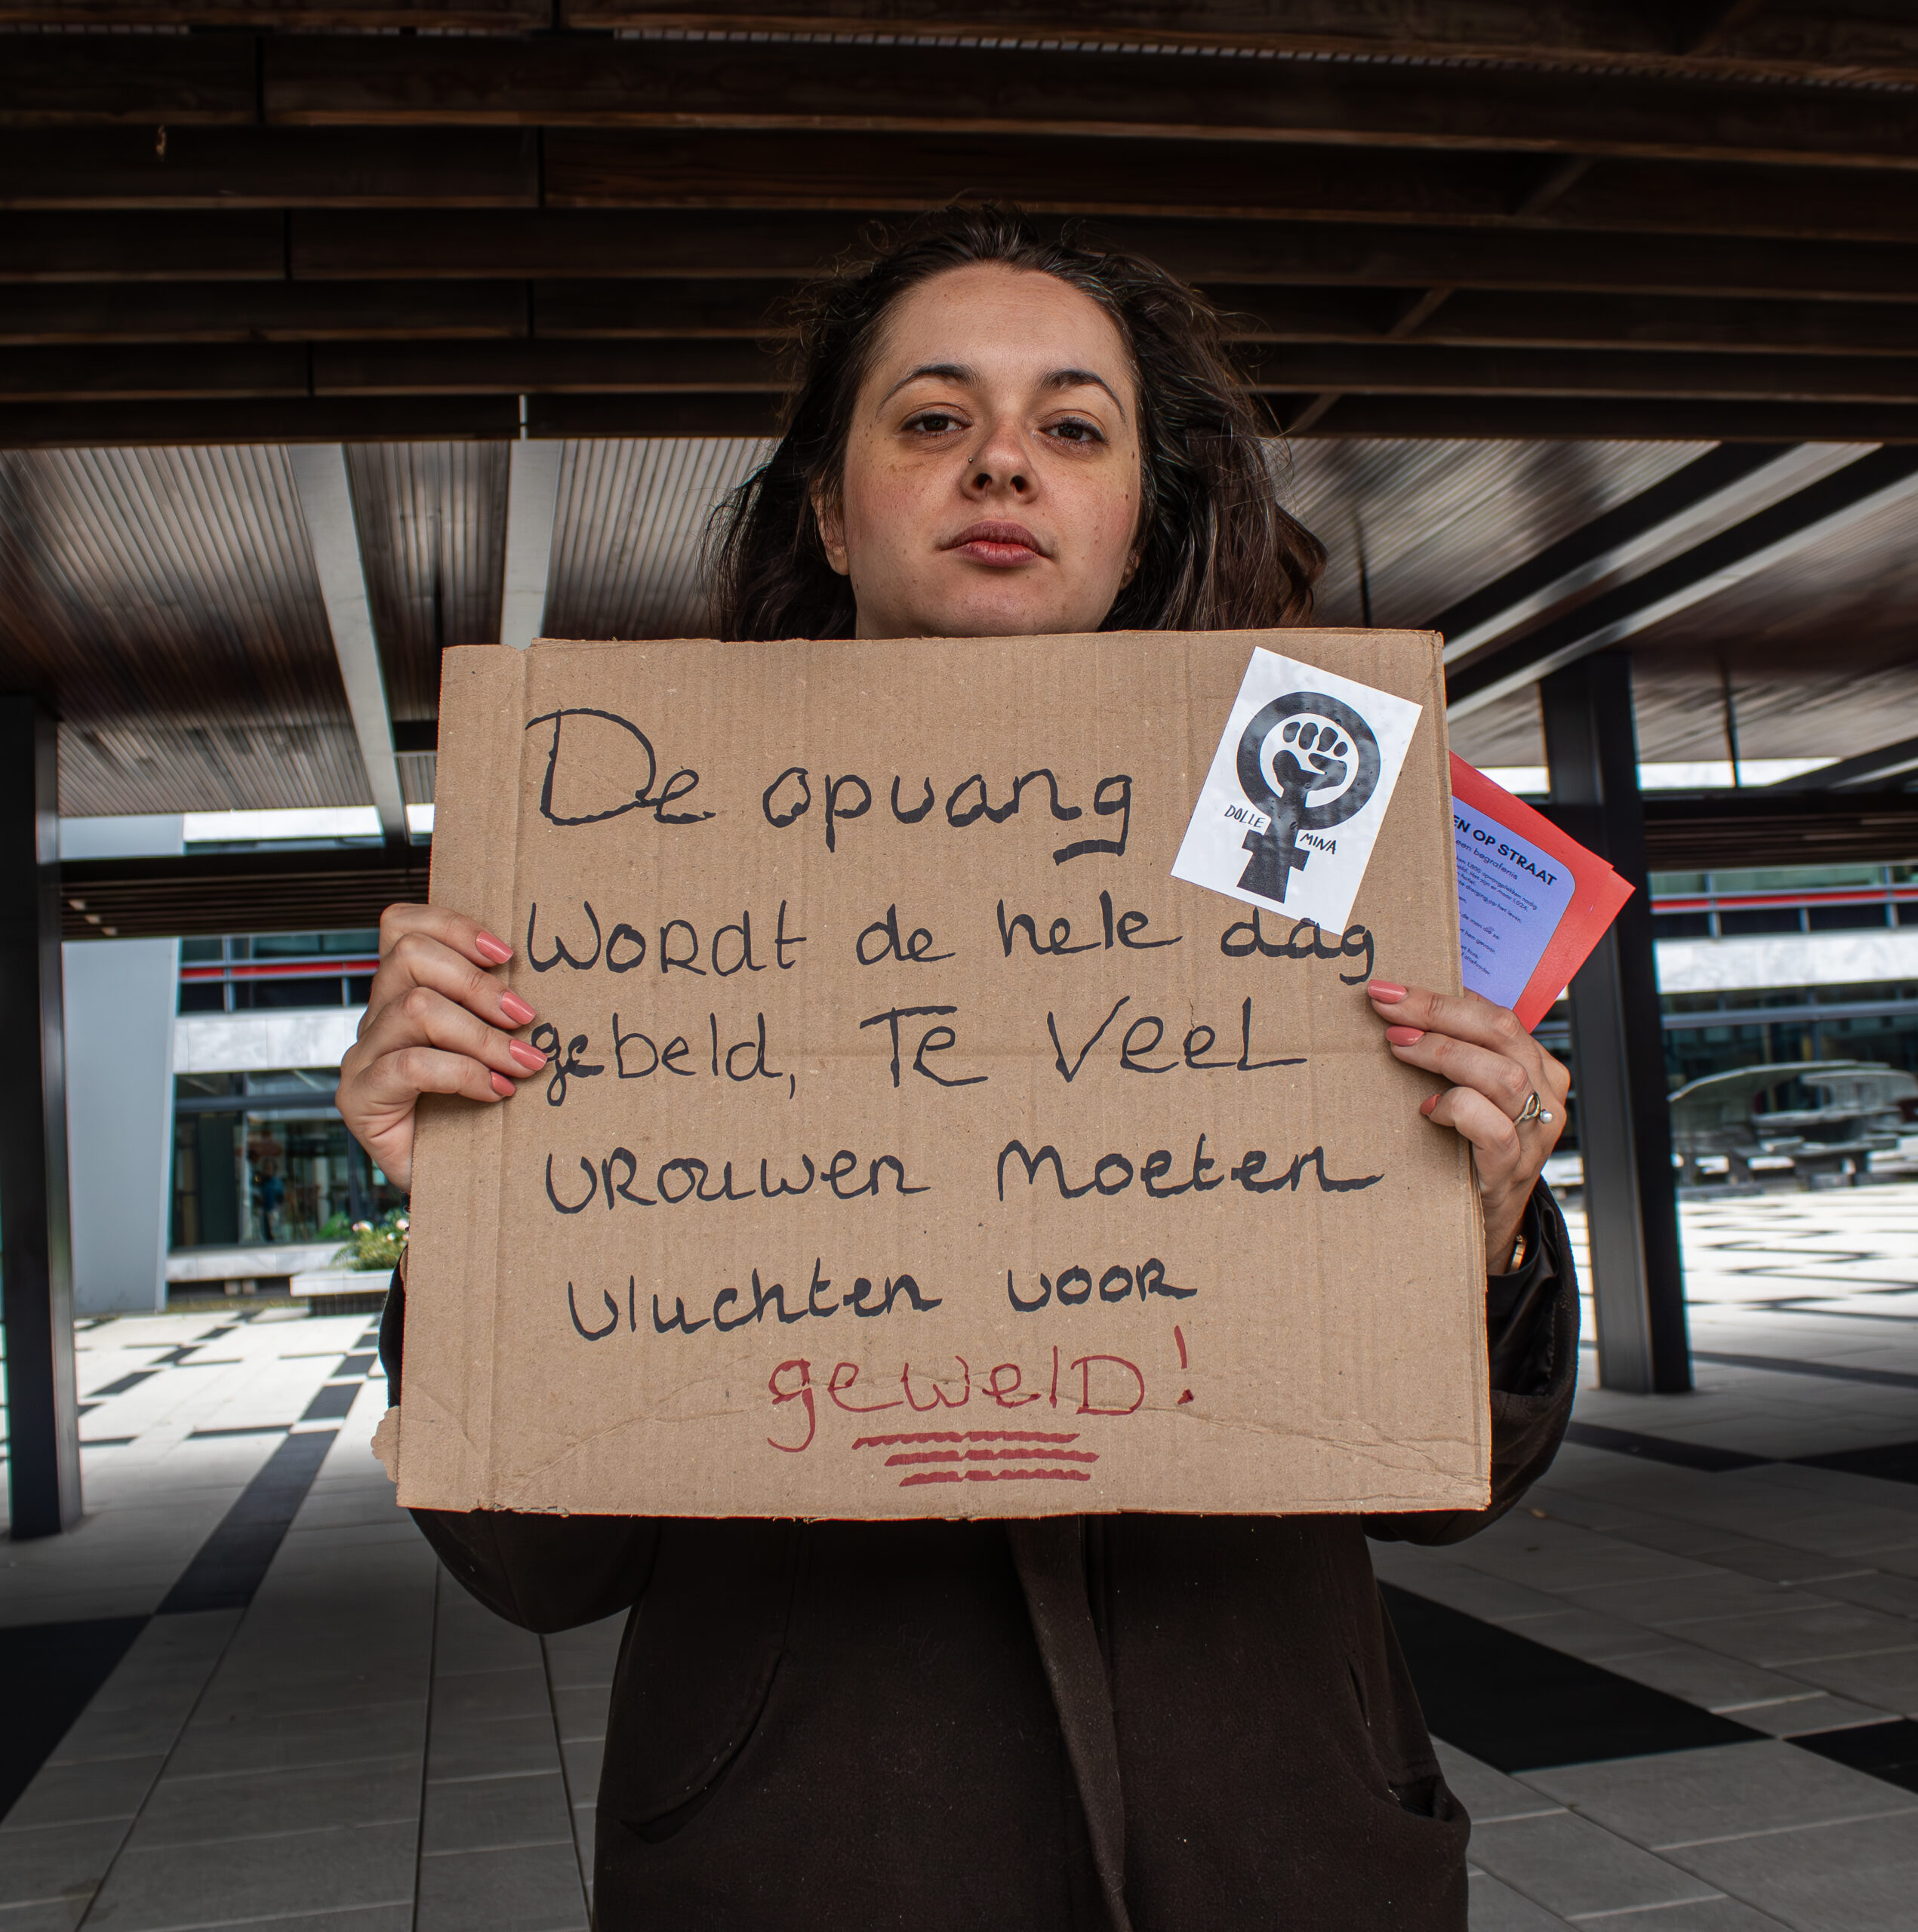 De opvang
Wordt de hele dag
gebeld, Te Veel
vrouwen Moeten
vluchten voor
geweld!
DOLLE MINA
EN OP STRAAT
een begrafenis